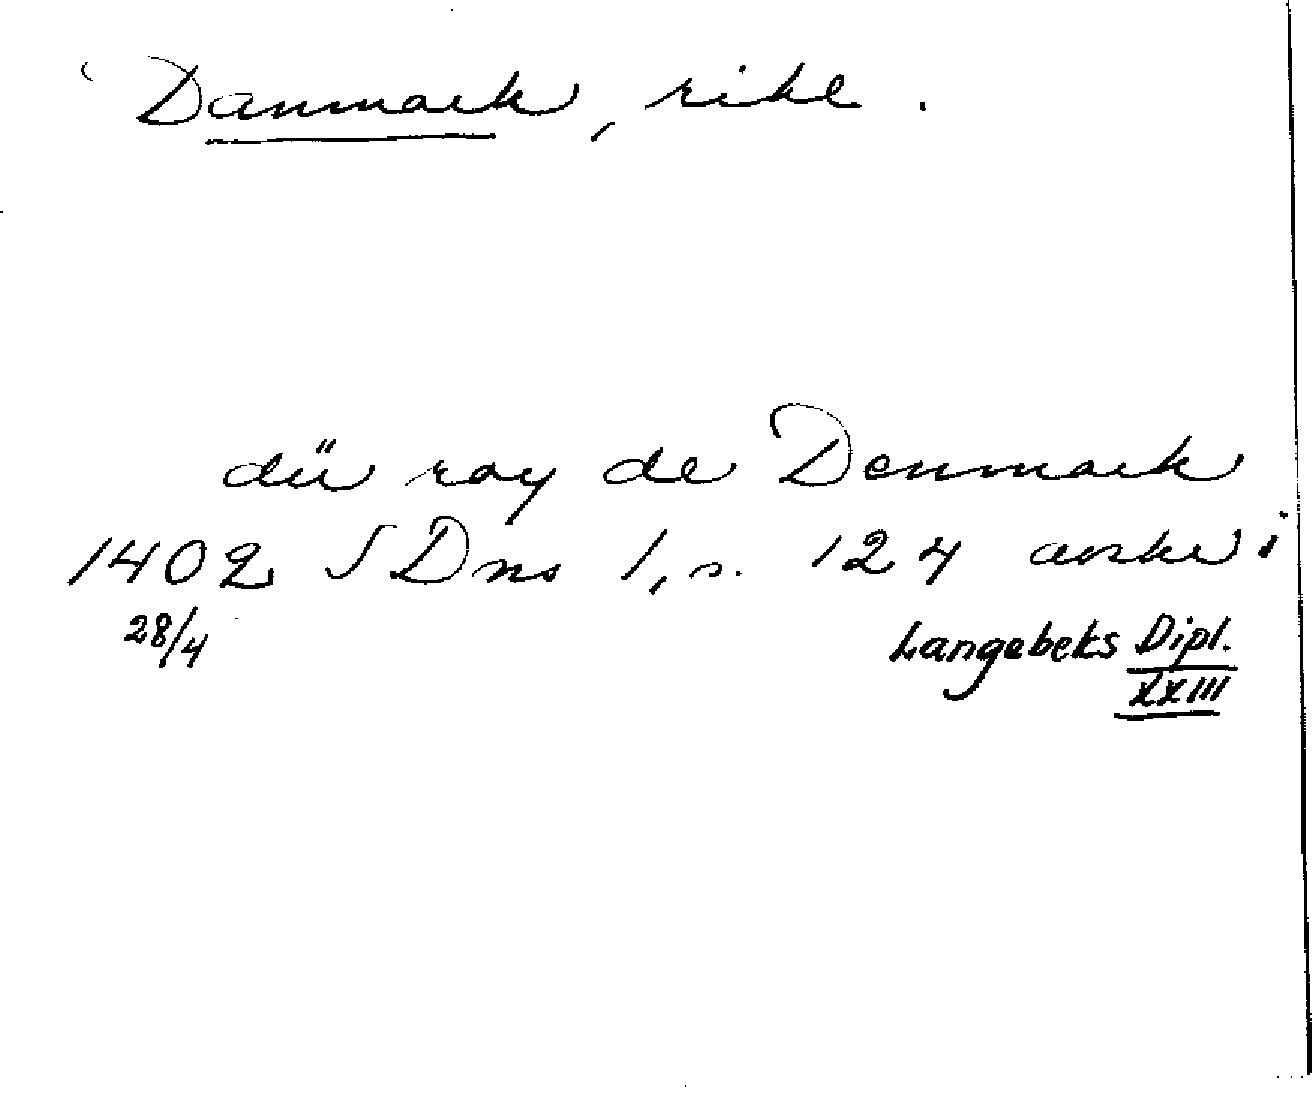 Danmark, rike.
dü roy de Denmark
1402 SDns 1, s. 124 avskr i
28/4 Langebeks Dipl.
XXIII